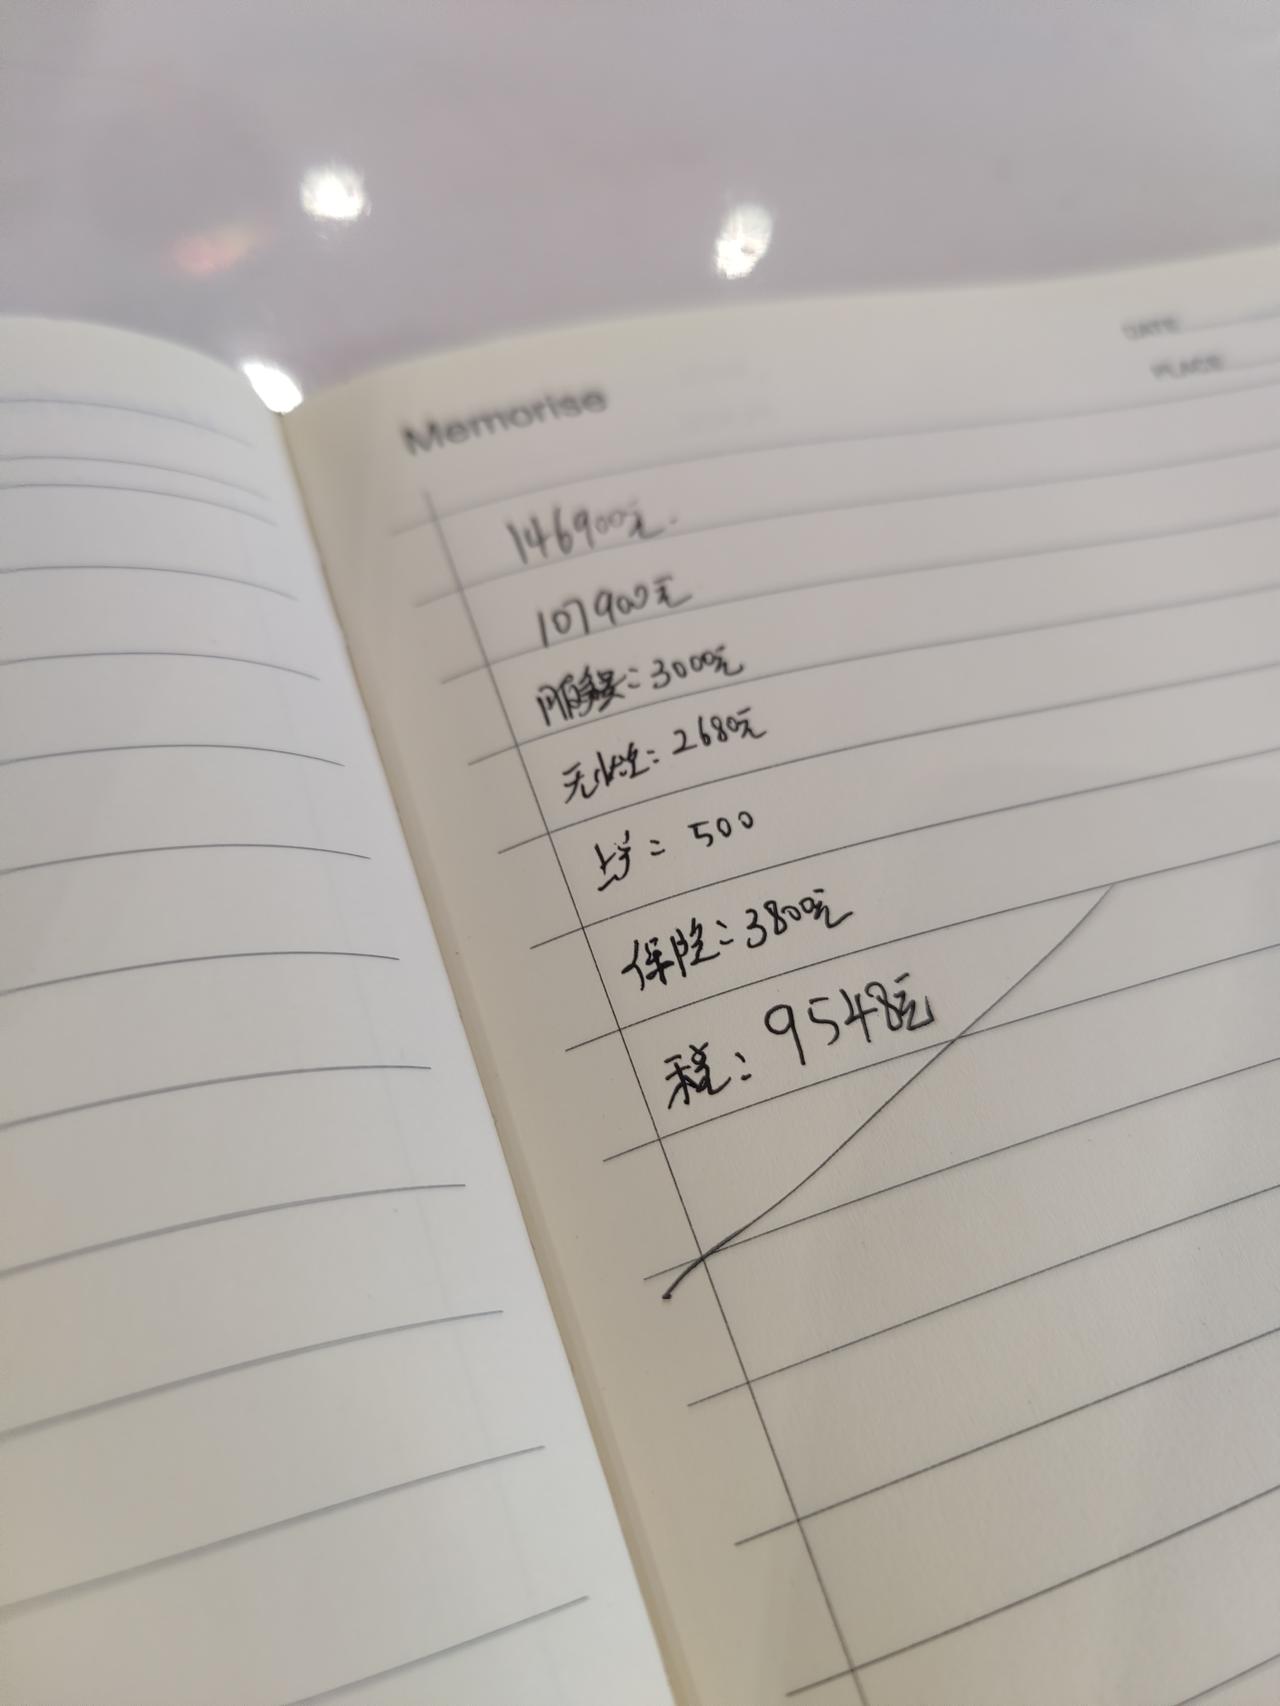 DATE
PLACE
Memorise
146900元
107900元
服务费:3000元
无忧:2680元
上户:500
保险:3800元
税:9548元